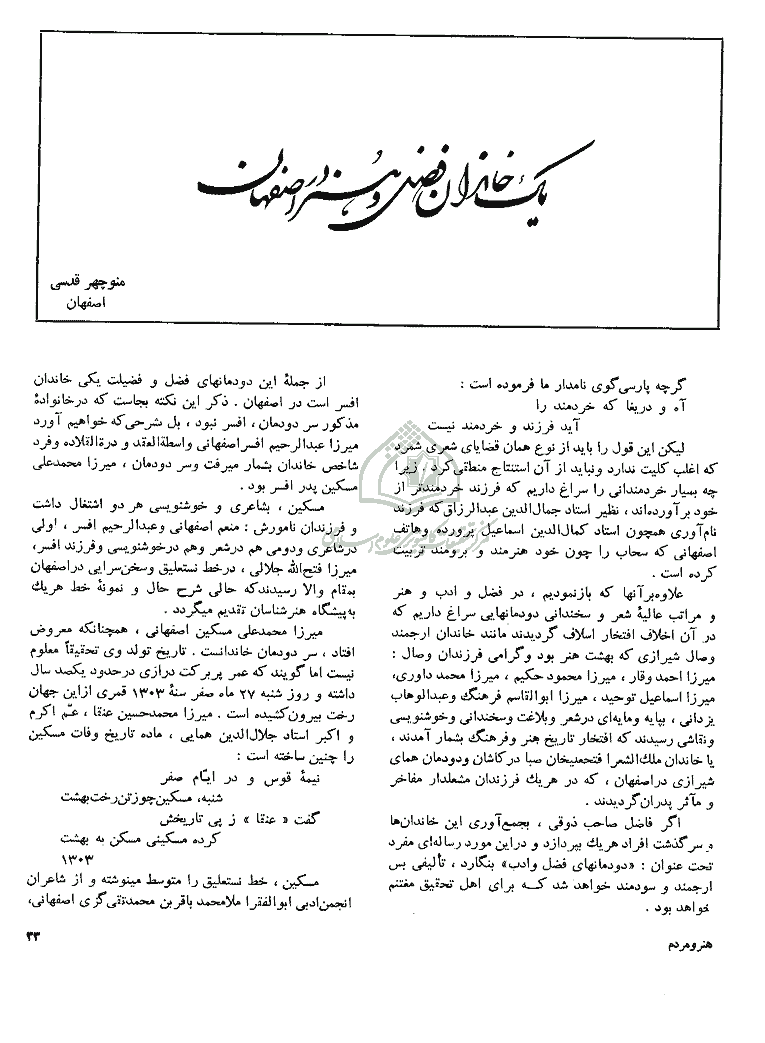 یک خاندان فضل و هنر در اصفهان
منوچهر قدسی
اصفهان
گرچه پارسی‌گوی نامدار ما فرموده است :
آه و دریغا که خردمند را
آید فرزند و خردمند نیست
لیکن این قول را باید از نوع همان قضایای شعری شمرد
که اغلب کلیت ندارد ونباید از آن استنتاج منطقی‌کرد . زیرا
چه بسیار خردمندانی را سراغ داریم که فرزند خردمندتر از
خود برآورده‌اند ، نظیر استاد جمال‌الدین عبدالرزاق که فرزند
نام‌آوری همچون استاد کمال‌الدین اسماعیل پرورده وهاتف
اصفهانی که سحاب را چون خود هنرمند و برومند تربیت
کرده است .
علاوه‌برآنها که بازنمودیم ، در فضل و ادب و هنر
و مراتب عالیهٔ شعر و سخندانی دودمانهایی سراغ داریم که
در آن اخلاف افتخار اسلاف گردیدند مانند خاندان ارجمند
وصال شیرازی که بهشت هنر بود وگرامی فرزندان وصال :
میرزا احمد وقار ، میرزا محمود حکیم ، میرزا محمد داوری،
میرزا اسماعیل توحید ، میرزا ابوالقاسم فرهنگ وعبدالوهاب
یزدانی ، بپایه ومایه‌ای درشعر وبلاغت وسخندانی وخوشنویسی
ونقاشی رسیدند که افتخار تاریخ هنر وفرهنگ بشمار آمدند ،
یا خاندان ملك‌الشعرا فتحعلیخان صبا درکاشان ودودمان همای
شیرازی دراصفهان ، که در هریك فرزندان مشعلدار مفاخر
و مآثر پدران‌گردیدند .
اگر فاضل صاحب ذوقی ، بجمع‌آوری این خاندان‌ها
و سرگذشت افراد هریك بپردازد و دراین مورد رساله‌ای مفرد
تحت عنوان : «دودمانهای فضل وادب» بنگارد ، تألیفی بس
ارجمند و سودمند خواهد شد کــه برای اهل تحقیق مغتنم
خواهد بود .
هنرومردم
از جملهٔ این دودمانهای فضل و فضیلت یکی خاندان
افسر است در اصفهان . ذکر این نکته بجاست که درخانوادهٔ
مذکور سر دودمان ، افسر نبود ، بل شرحی‌که خواهیم آورد
میرزا عبدالرحیم افسراصفهانی واسطةالعقد و درةالقلاده وفرد
شاخص خاندان بشمار میرفت وسر دودمان ، میرزا محمدعلی
مسکین پدر افسر بود .
مسکین ، بشاعری و خوشنویسی هر دو اشتغال داشت
و فرزندان نامورش : منعم اصفهانی وعبدالرحیم افسر ، اولی
درشاعری ودومی هم درشعر وهم درخوشنویسی وفرزند افسر،
میرزا فتح‌الله جلالی ، درخط نستعلیق وسخن‌سرایی دراصفهان
بمقام والا رسیدندکه حالی شرح حال و نمونهٔ خط هریك
به‌پیشگاه هنرشناسان تقدیم میگردد .
میرزا محمدعلی مسکین اصفهانی ، همچنانکه معروض
افتاد ، سر دودمان خاندانست . تاریخ تولد وی تحقیقاً معلوم
نیست اما گویند که عمر پربرکت درازی درحدود یکصد سال
داشته و روز شنبه ۲۷ ماه صفر سنهٔ ۱۳۰۳ قمری ازاین جهان
رخت بیرون‌کشیده است . میرزا محمدحسین عنقا ، عـّم اکرم
و اکبر استاد جلال‌الدین همایی ، ماده تاریخ وفات مسکین
را چنین ساخته است :
نیمهٔ قوس و در ایّام صفر
شنبه، مسکین‌چوزتن‌رخت‌بهشت
گفت « عنقا » ز پی تاریخش
کرده مسکینی مسکن به بهشت
۱۳۰۳
مسکین ، خط نستعلیق را متوسط مینوشته و از شاعران
انجمن‌ادبی ابوالفقرا ملامحمد باقربن محمدتقی‌گزی اصفهانی،
۳۳